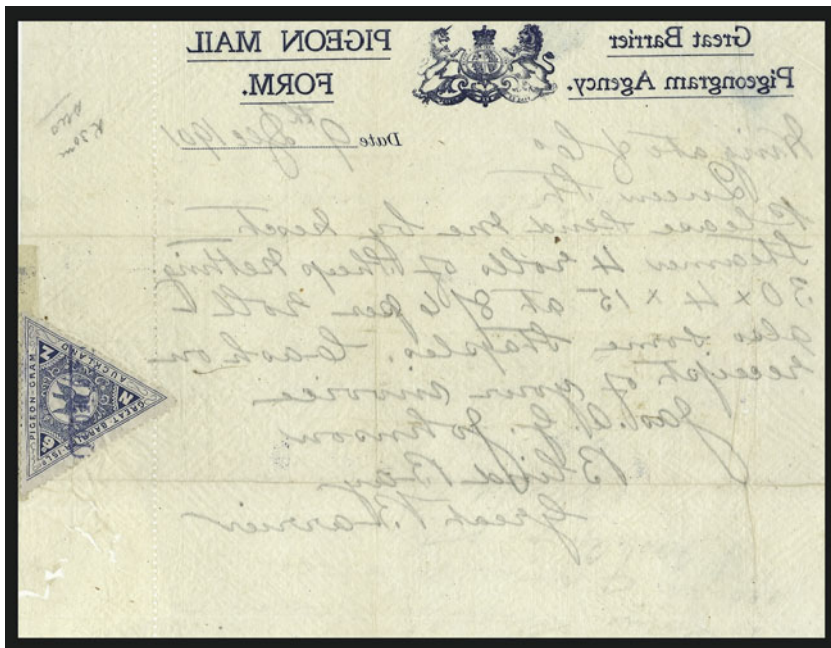 Great Barrier
Pigeongram Agency.
PIGEON MAIL
FORM.
Date 9th Dec 1901
& Co
Queen St
Please send me by next
steamer 4 rolls of sheep netting
30 x 4 x 15 at per roll
also some staples. Cash on
receipt of your invoice
Jas. A. G. Johnson
Blind Bay
Great Barrier
PIGEON-GRAM
AUCKLAND
GREAT BARRIER ISLD
N Z